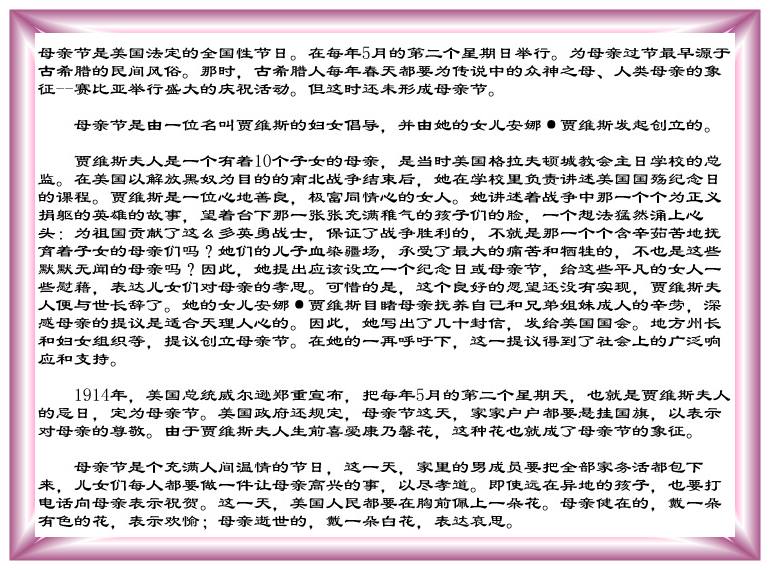 母亲节是美国法定的全国性节日。在每年5月的第二个星期日举行。为母亲过节最早源于
古希腊的民间风俗。那时，古希腊人每年春天都要为传说中的众神之母、人类母亲的象
征--赛比亚举行盛大的庆祝活动。但这时还未形成母亲节。
母亲节是由一位名叫贾维斯的妇女倡导，并由她的女儿安娜●贾维斯发起创立的。
贾维斯夫人是一个有着10个子女的母亲，是当时美国格拉夫顿城教会主日学校的总
监。在美国以解放黑奴为目的的南北战争结束后，她在学校里负责讲述美国国殇纪念日
的课程。贾维斯是一位心地善良，极富同情心的女人。她讲述着战争中那一个个为正义
捐躯的英雄的故事，望着台下那一张张充满稚气的孩子们的脸，一个想法猛然涌上心
头：为祖国贡献了这么多英勇战士，保证了战争胜利的，不就是那一个个含辛茹苦地抚
育着子女的母亲们吗？她们的儿子血染疆场，承受了最大的痛苦和牺牲的，不也是这些
默默无闻的母亲吗？因此，她提出应该设立一个纪念日或母亲节，给这些平凡的女人一
些慰藉，表达儿女们对母亲的孝思。可惜的是，这个良好的愿望还没有实现，贾维斯夫
人便与世长辞了。她的女儿安娜●贾维斯目睹母亲抚养自己和兄弟姐妹成人的辛劳，深
感母亲的提议是适合天理人心的。因此，她写出了几十封信，发给美国国会。地方州长
和妇女组织等，提议创立母亲节。在她的一再呼吁下，这一提议得到了社会上的广泛响
应和支持。
1914年，美国总统威尔逊郑重宣布，把每年5月的第二个星期天，也就是贾维斯夫人
的忌日，定为母亲节。美国政府还规定，母亲节这天，家家户户都要悬挂国旗，以表示
对母亲的尊敬。由于贾维斯夫人生前喜爱康乃馨花，这种花也就成了母亲节的象征。
母亲节是个充满人间温情的节日，这一天，家里的男成员要把全部家务活都包下
来，儿女们每人都要做一件让母亲高兴的事，以尽孝道。即使远在异地的孩子，也要打
电话向母亲表示祝贺。这一天，美国人民都要在胸前佩上一朵花。母亲健在的，戴一朵
有色的花，表示欢愉；母亲逝世的，戴一朵白花，表达哀思。